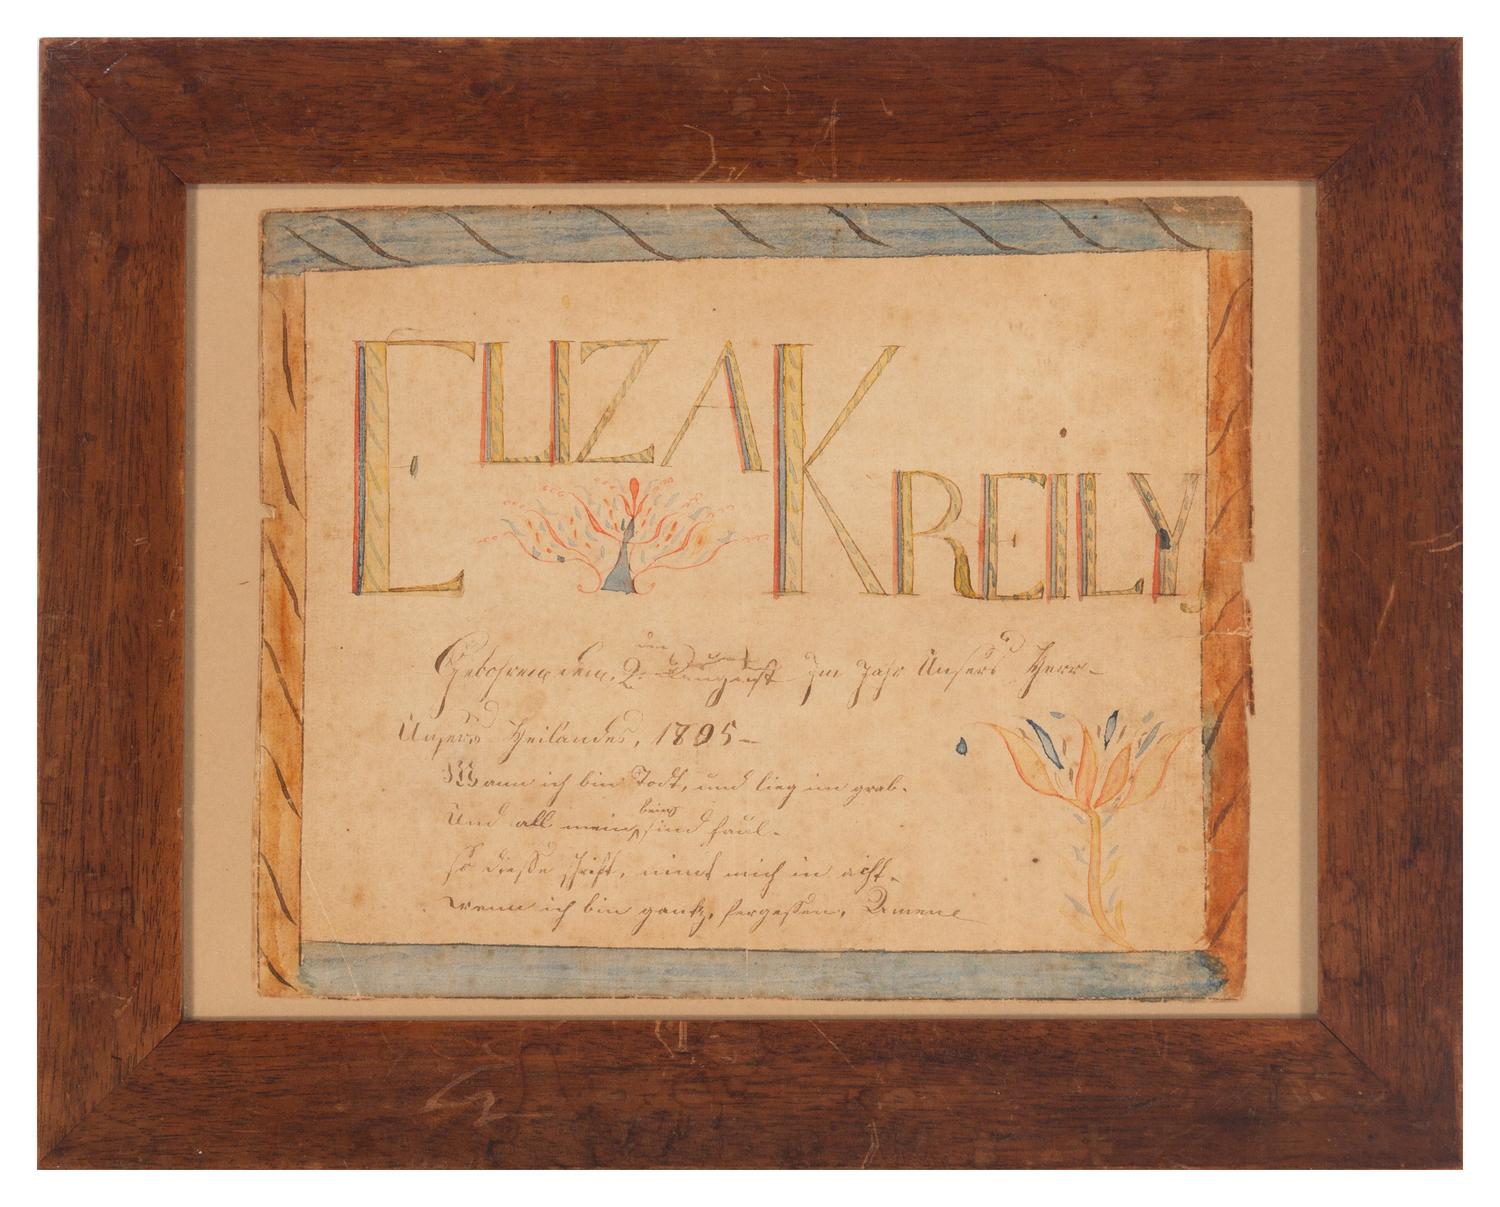 ELIZA KREILY
Gebohren den, 2. August Im Jahr Unsers Herr-
Unsers Heilandes, 1805-
Wann ich bin Todt, und lieg im grab.
Und all meine bein sind faul.
so diesse schrift, nimt mich in acht.
wenn ich bin gantz, fergessen, Amene